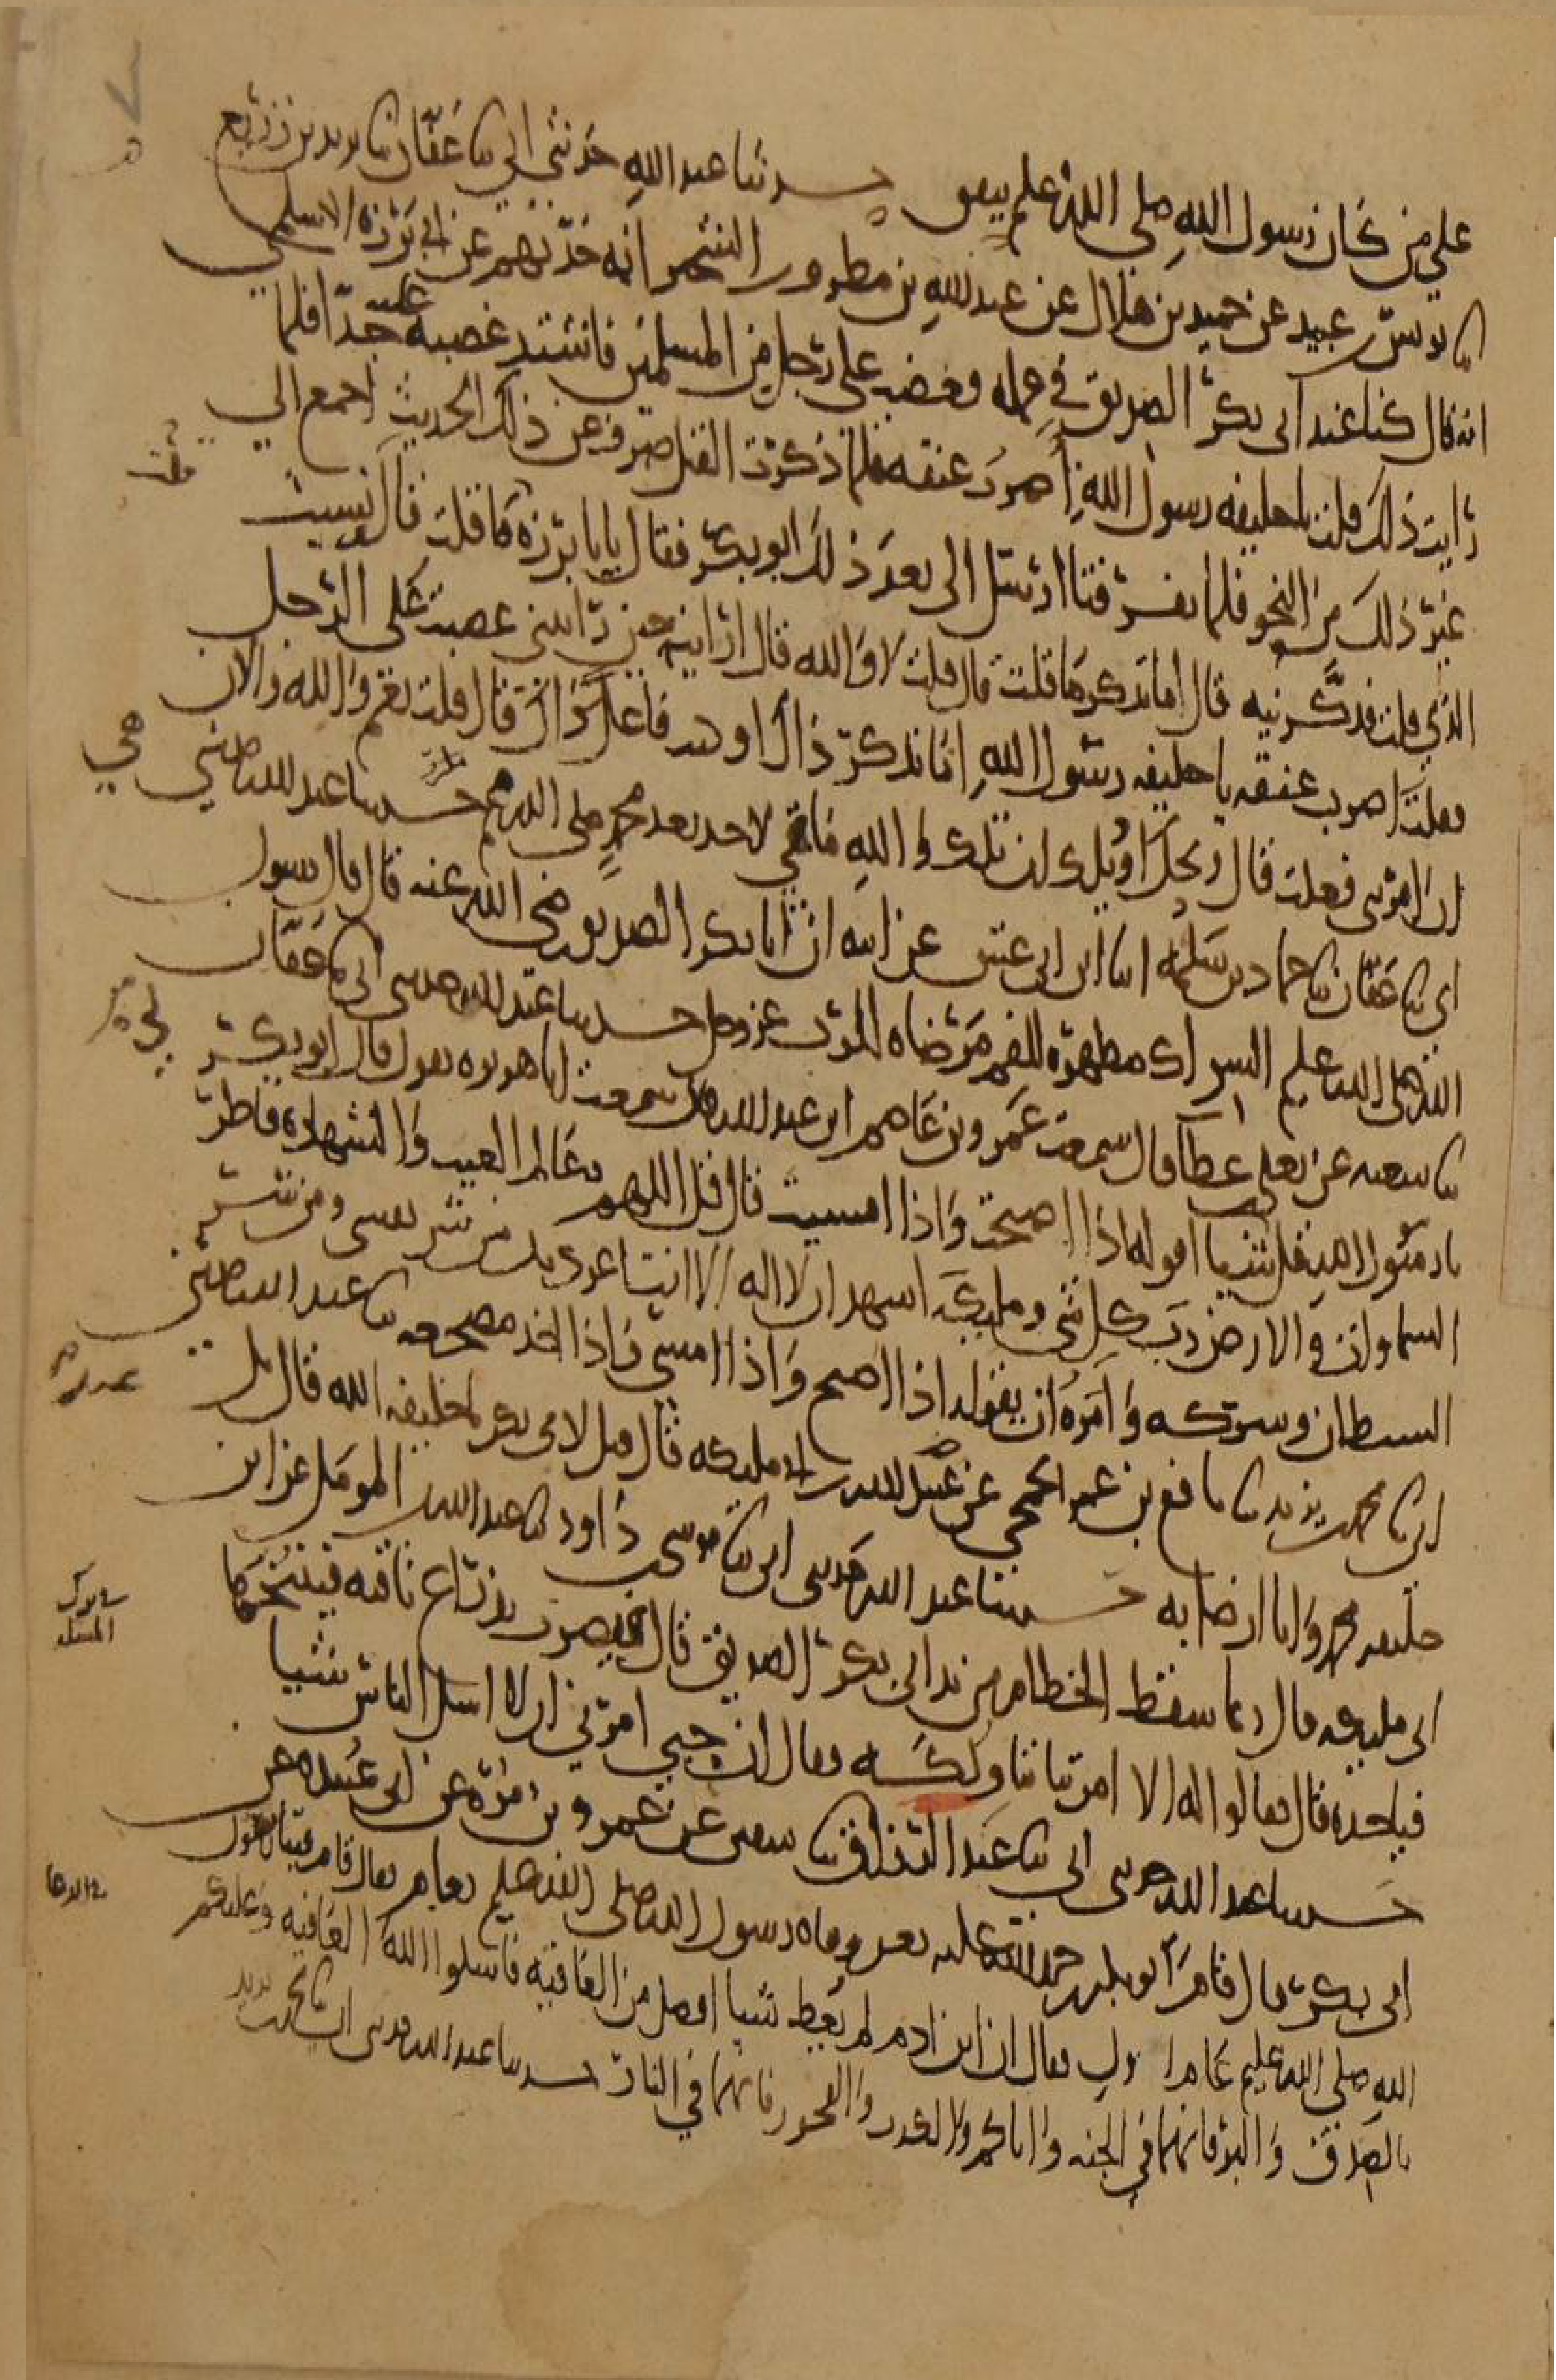 علي من كان رسول الله صلى الله عليه ينفق حدثنا عبد الله حدثني ابي ثنا عفان ثنا يزيد بن زريع
ثنا يونس بن عبيد عن حميد بن هلال عن عبد الله بن مطرف بن الشخير انه حدثهم عن ابي برزة الاسلمي
انه قال كنا عند ابي بكر الصديق في عمله فغضب على رجل من المسلمين فاشتد غضبه عليه جدا فلما
رايت ذلك قلت يا خليفه رسول الله اضرب عنقه فلما ذكرت القتل صرف عن ذلك الحديث اجمع الى
غير ذلك من النحو فلما تفرقنا ارسل الي بعد ذلك ابو بكر فقال يا با برزة ما قلت قال نسيت
الذي قلت قلت ذكرنيه قال اما تذكر ما قلت قال قلت لا والله قال ارايت حين رايتني غضبت على الرجل
فقلت اضرب عنقه يا خليفه رسول الله اما تذكر ذاك او كنت فاعلا ذاك قال قلت نعم والله والان
ان امرتني فعلت قال ويحك او ويلك ان تلك والله ما هي لاحد بعد محمد صلى الله عليه حدثنا عبد الله حدثني
ابي ثنا عفان ثنا حماد بن سلمه انا ابن ابي عتيق عن ابيه ان ابا بكر الصديق رضي الله عنه قال قال رسول
الله صلى الله عليه السواك مطهرة للفم مرضاه للرب عز وجل حدثنا عبد الله حدثني ابي ثنا عفان
ثنا شعبه عن يعلى بن عطا قال سمعت عمرو بن عاصم ابن عبد الله قال سمعت ابا هريره يقول قال ابو بكر
يا رسول الله قل لي شيا اقوله اذا اصبحت واذا امسيت قال قل اللهم عالم الغيب والشهادة فاطر
السماوات والارض رب كل شي ومليكه اشهد ان لا اله الا انت اعوذ بك من شر نفسي ومن شر
الشيطان وشركه وامره ان يقوله اذا اصبح واذا امسى واذا اخذ مضجعه ثنا عبد الله حدثني
ابي ثنا محمد بن يزيد ثنا نافع بن عمر الجمحي عن عبد الله بن ابي مليكه قال قيل لابي بكر يا خليفه الله قال بل
خليفه محمد وانا ارضا به حدثنا عبد الله حدثني ابي ثنا موسى بن داود ثنا عبد الله بن المومل عن ابن
ابي مليكه قال ربما سقط الخطام من يد ابي بكر الصديق قال فيضرب بذراع ناقته فينيخها
فياخذه قال فقالوا له الا امرتنا نناولكه فقال ان حبي امرني ان لا اسل الناس شيا
حدثنا عبد الله حدثني ابي ثنا عبد الرزاق ثنا سفين عن عمرو بن مرة عن ابي عبيده عن
ابي بكر قال قام ابو بكر رحمة الله عليه بعد وفاه رسول الله صلى الله عليه بعام فقال قام فينا رسول
الله صلى الله عليه عام اول فقال ان ابن ادم لم يعط شيا افضل من العافيه فاسلوا الله العافيه وعليكم
بالصدق والبر فانهما في الجنه واياكم والكذب والفجور فانهما في النار حدثنا عبد الله حدثني ابي ثنا محمد بن يزيد